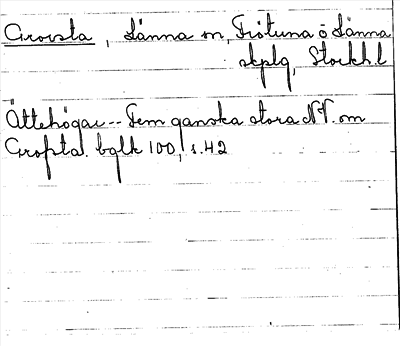 Growsta, Länna sn, Frötuna o Länna
skplg, Stockh.l
Ättehögar -- Fem ganska stora NV. om
Grofsta. bglk 100, s. 42